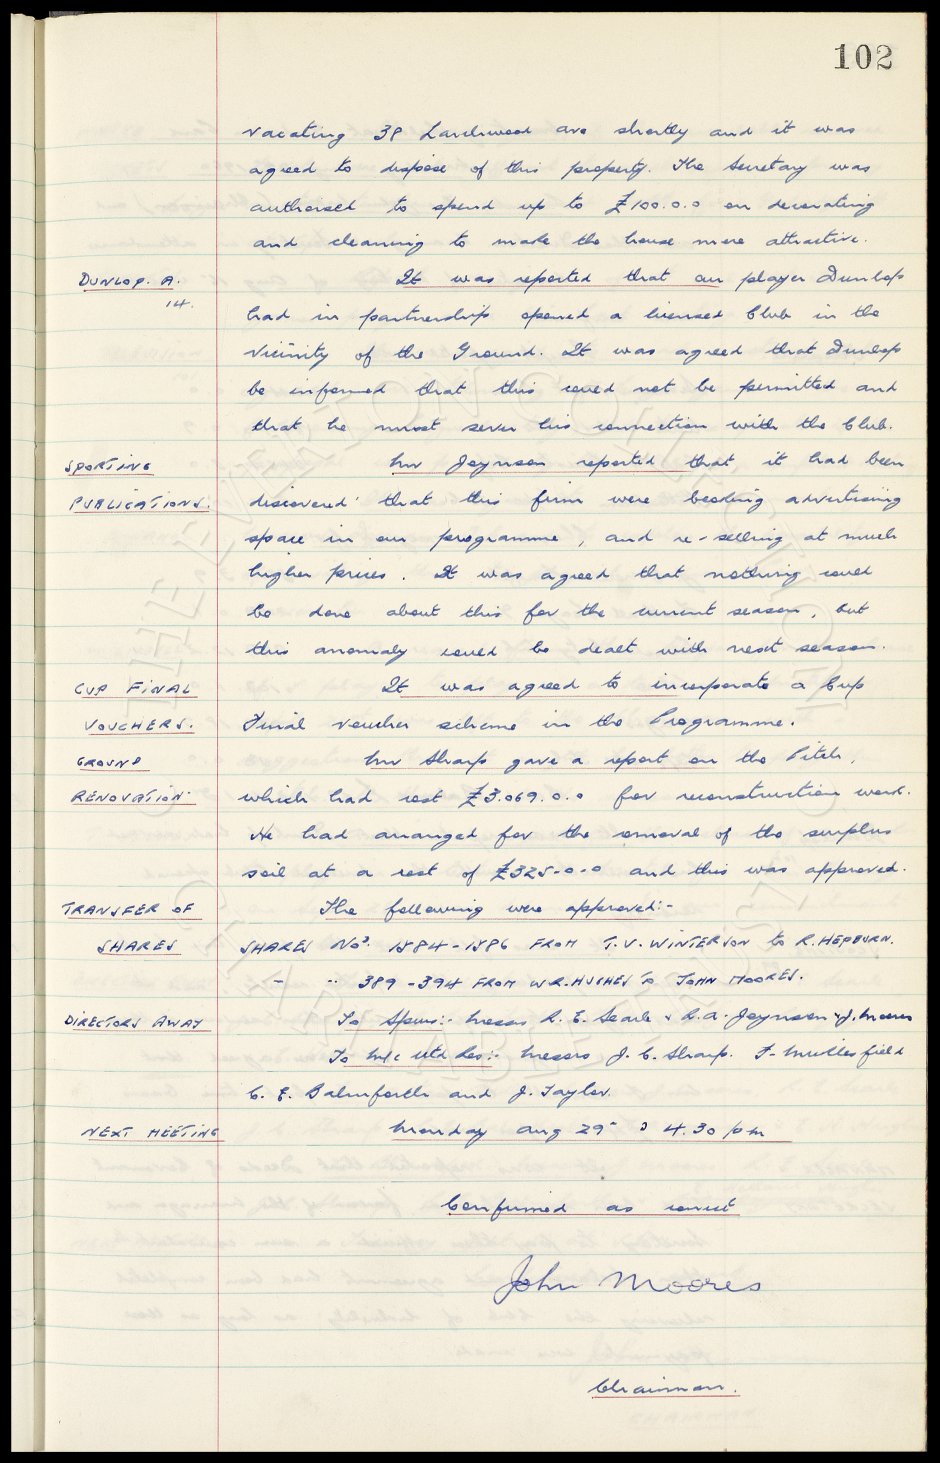 102
vacating 38 Larchwood ave shortly and it was
agreed to dispose of this property. The Secretary was
authorised to spend up to £100.0.0 on decorating
and cleaning to make the house more attractive.
DUNLOP. A. It was reported that our player Dunlop
14. had in partnership opened a licensed Club in the
vicinity of the Ground. It was agreed that Dunlop
be informed that this could not be permitted and
that he must sever his connection with the Club.
SPORTING Mr Joynson reported that it had been
PUBLICATIONS. discovered that this firm were booking advertising
space in our programme, and re-selling at much
higher prices. It was agreed that nothing could
be done about this for the current season, but
this anomaly could be dealt with next season.
CUP FINAL It was agreed to incorporate a Cup
VOUCHERS. Final voucher scheme in the Programme.
GROUND Mr Sharp gave a report on the Pitch,
RENOVATION which had cost £3.069.0.0 for reconstruction work.
He had arranged for the removal of the surplus
soil at a cost of £325-0-0 and this was approved.
TRANSFER OF The following were approved:-
SHARES SHARES Nos. 1584-1586 FROM T.V. WINTERSON to R. HEPBURN.
- .. 389-394 FROM W.R. HUGHES to JOHN MOORES.
DIRECTORS AWAY To Spurs:- Messrs R. E. Searle & R.A. Joynson & J. Moores
To M/c Utd Res:- Messrs J. C. Sharp. F. Micklesfield
C. E. Balmforth and J. Taylor.
NEXT MEETING Monday Aug 29 4.30 p m
Confirmed as correct
John Moores
Chairman.